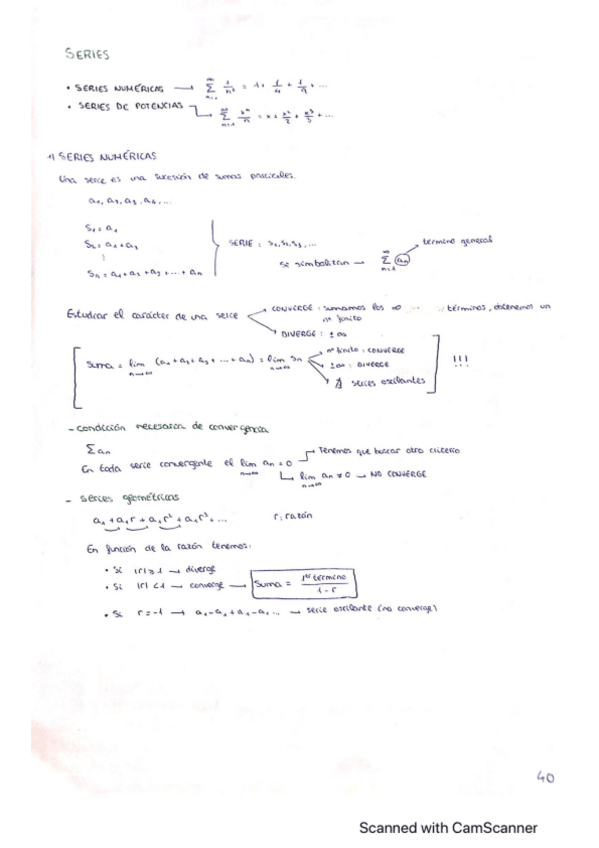 SERIES
• SERIES NUMÉRICAS → ∞ Σ n=1 1/n² = 1 + 1/4 + 1/9 + ...
• SERIES DE POTENCIAS → ∞ Σ n=1 xⁿ/n = x + x²/2 + x³/3 + ...
1) SERIES NUMÉRICAS
Una serie es una sucesión de sumas parciales.
a₁, a₂, a₃, a₄, ...
S₁ = a₁
S₂ = a₁ + a₂
⋮
Sₙ = a₁ + a₂ + a₃ + ... + aₙ
SERIE: S₁, S₂, S₃, ...
se simbolizan → ∞ Σ n=1 aₙ → término general
Estudiar el carácter de una serie
CONVERGE: sumamos los ∞ términos, obtenemos un
nº finito
DIVERGE: ±∞
Suma = lim n→∞ (a₁ + a₂ + a₃ + ... + aₙ) = lim n→∞ Sₙ
nº finito: CONVERGE
±∞: DIVERGE
∄ series oscilantes
!!!
- condición necesaria de convergencia
Σ aₙ
En toda serie convergente el lim n→∞ aₙ = 0 → Tenemos que buscar otro criterio
↳ lim n→∞ aₙ ≠ 0 → NO CONVERGE
- series geométricas
a₁ + a₁r + a₁r² + a₁r³ + ... r: razón
En función de la razón tenemos:
• Si |r| ≥ 1 → diverge
• Si |r| < 1 → converge → Suma = 1er término / 1 - r
• Si r = -1 → a₁ - a₁ + a₁ - a₁ ... → serie oscilante (no converge)
40
Scanned with CamScanner